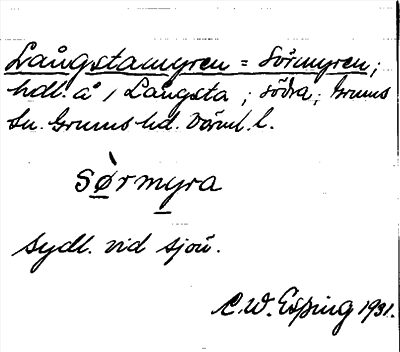 Långstamyren = Sörmyren;
hdl. å 1 Långsta; södra; Grums
sn. Grums hd. Värml. l.
sørmyra
sydl. vid sjön.
C.W. Esping 1931.